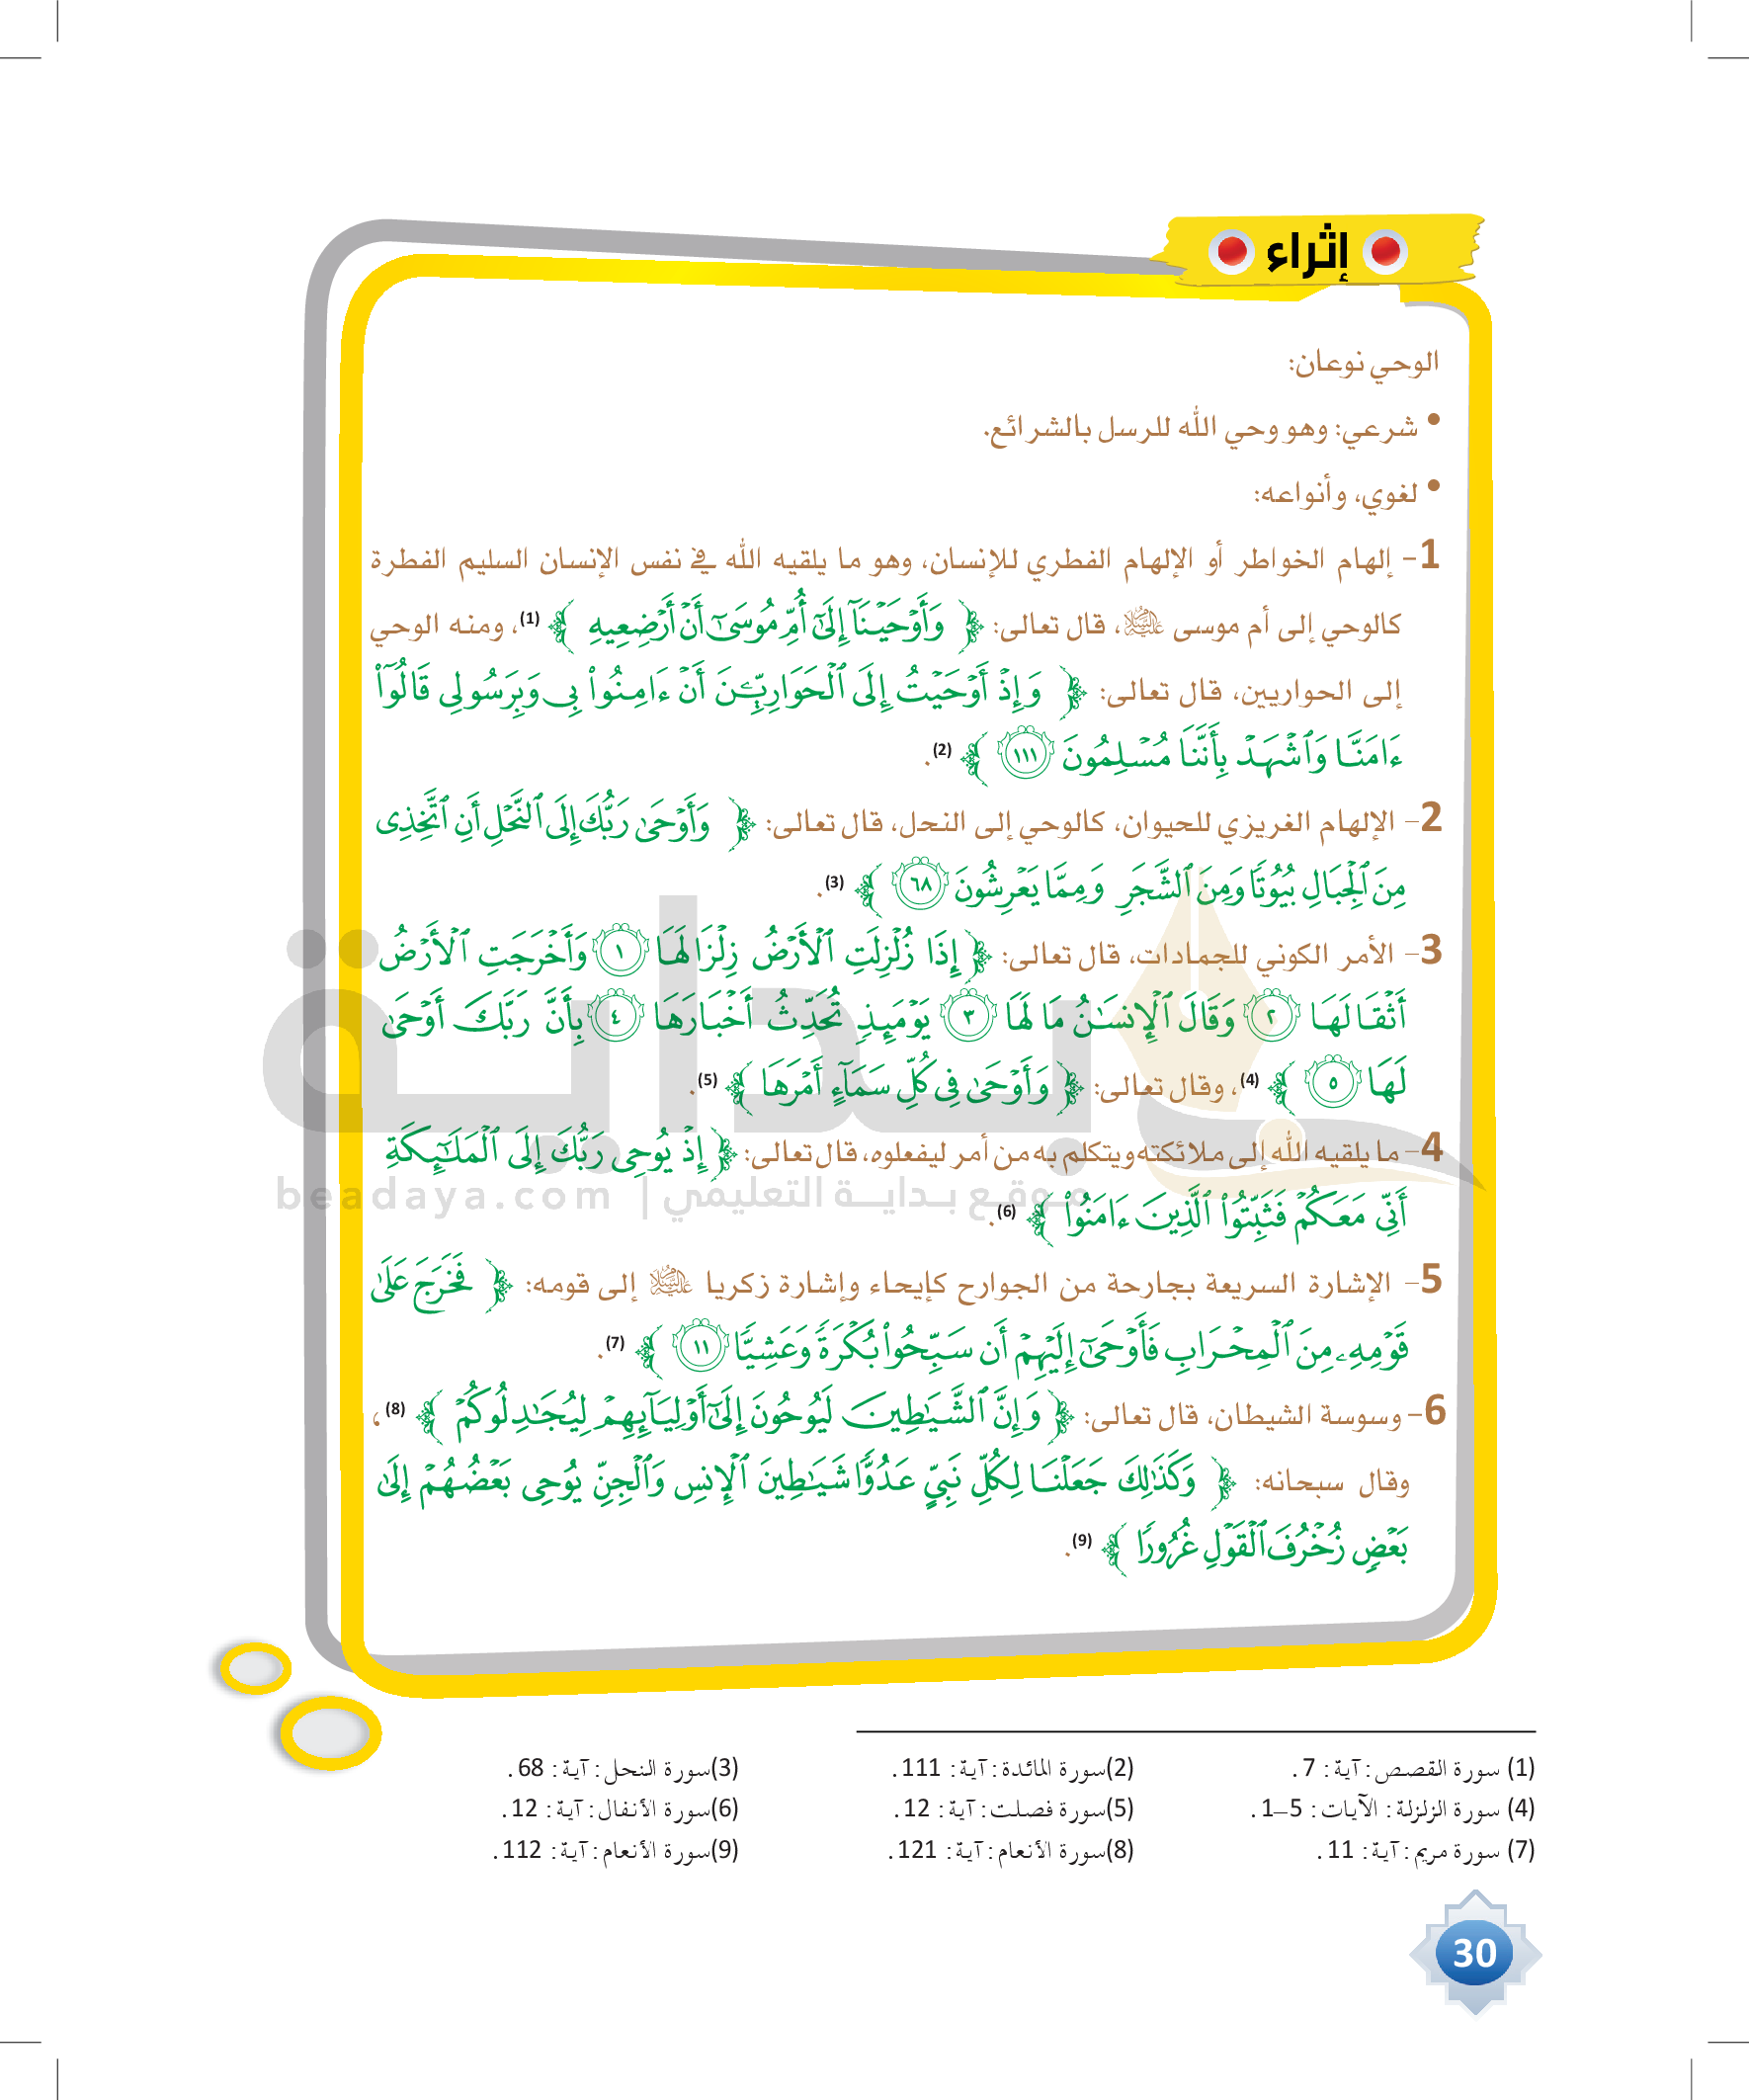 إثراء
الوحي نوعان:
• شرعي: وهو وحي الله للرسل بالشرائع.
• لغوي، وأنواعه:
1- إلهام الخواطر أو الإلهام الفطري للإنسان، وهو ما يلقيه الله في نفس الإنسان السليم الفطرة
كالوحي إلى أم موسى عليه السلام، قال تعالى: ﴿ وَأَوْحَيْنَآ إِلَىٰٓ أُمِّ مُوسَىٰٓ أَنْ أَرْضِعِيهِ ﴾ (1)، ومنه الوحي
إلى الحواريين، قال تعالى: ﴿ وَإِذْ أَوْحَيْتُ إِلَى ٱلْحَوَارِيِّـۧنَ أَنْ ءَامِنُوا۟ بِى وَبِرَسُولِى قَالُوٓا۟
ءَامَنَّا وَٱشْهَدْ بِأَنَّنَا مُسْلِمُونَ ١١١ ﴾ (2).
2- الإلهام الغريزي للحيوان، كالوحي إلى النحل، قال تعالى: ﴿ وَأَوْحَىٰ رَبُّكَ إِلَى ٱلنَّحْلِ أَنِ ٱتَّخِذِى
مِنَ ٱلْجِبَالِ بُيُوتًا وَمِنَ ٱلشَّجَرِ وَمِمَّا يَعْرِشُونَ ٦٨ ﴾ (3).
3- الأمر الكوني للجمادات، قال تعالى: ﴿ إِذَا زُلْزِلَتِ ٱلْأَرْضُ زِلْزَالَهَا ١ وَأَخْرَجَتِ ٱلْأَرْضُ
أَثْقَالَهَا ٢ وَقَالَ ٱلْإِنسَـٰنُ مَا لَهَا ٣ يَوْمَئِذٍ تُحَدِّثُ أَخْبَارَهَا ٤ بِأَنَّ رَبَّكَ أَوْحَىٰ
لَهَا ٥ ﴾ (4)، وقال تعالى: ﴿ وَأَوْحَىٰ فِى كُلِّ سَمَآءٍ أَمْرَهَا ﴾ (5).
4- ما يلقيه الله إلى ملائكته ويتكلم به من أمر ليفعلوه، قال تعالى: ﴿ إِذْ يُوحِى رَبُّكَ إِلَى ٱلْمَلَـٰٓئِكَةِ
أَنِّى مَعَكُمْ فَثَبِّتُوا۟ ٱلَّذِينَ ءَامَنُوا۟ ﴾ (6).
5- الإشارة السريعة بجارحة من الجوارح كإيحاء وإشارة زكريا عليه السلام إلى قومه: ﴿ فَخَرَجَ عَلَىٰ
قَوْمِهِۦ مِنَ ٱلْمِحْرَابِ فَأَوْحَىٰٓ إِلَيْهِمْ أَن سَبِّحُوا۟ بُكْرَةً وَعَشِيًّا ١١ ﴾ (7).
6- وسوسة الشيطان، قال تعالى: ﴿ وَإِنَّ ٱلشَّيَـٰطِينَ لَيُوحُونَ إِلَىٰٓ أَوْلِيَآئِهِمْ لِيُجَـٰدِلُوكُمْ ﴾ (8)،
وقال سبحانه: ﴿ وَكَذَٰلِكَ جَعَلْنَا لِكُلِّ نَبِىٍّ عَدُوًّا شَيَـٰطِينَ ٱلْإِنسِ وَٱلْجِنِّ يُوحِى بَعْضُهُمْ إِلَىٰ
بَعْضٍ زُخْرُفَ ٱلْقَوْلِ غُرُورًا ﴾ (9).
بداية
موقع بداية التعليمي | beadaya.com
(1) سورة القصص: آية: 7. (2)سورة المائدة: آية: 111. (3)سورة النحل: آية: 68.
(4) سورة الزلزلة: الآيات: 5–1. (5)سورة فصلت: آية: 12. (6)سورة الأنفال: آية: 12.
(7) سورة مريم: آية: 11. (8)سورة الأنعام: آية: 121. (9)سورة الأنعام: آية: 112.
30